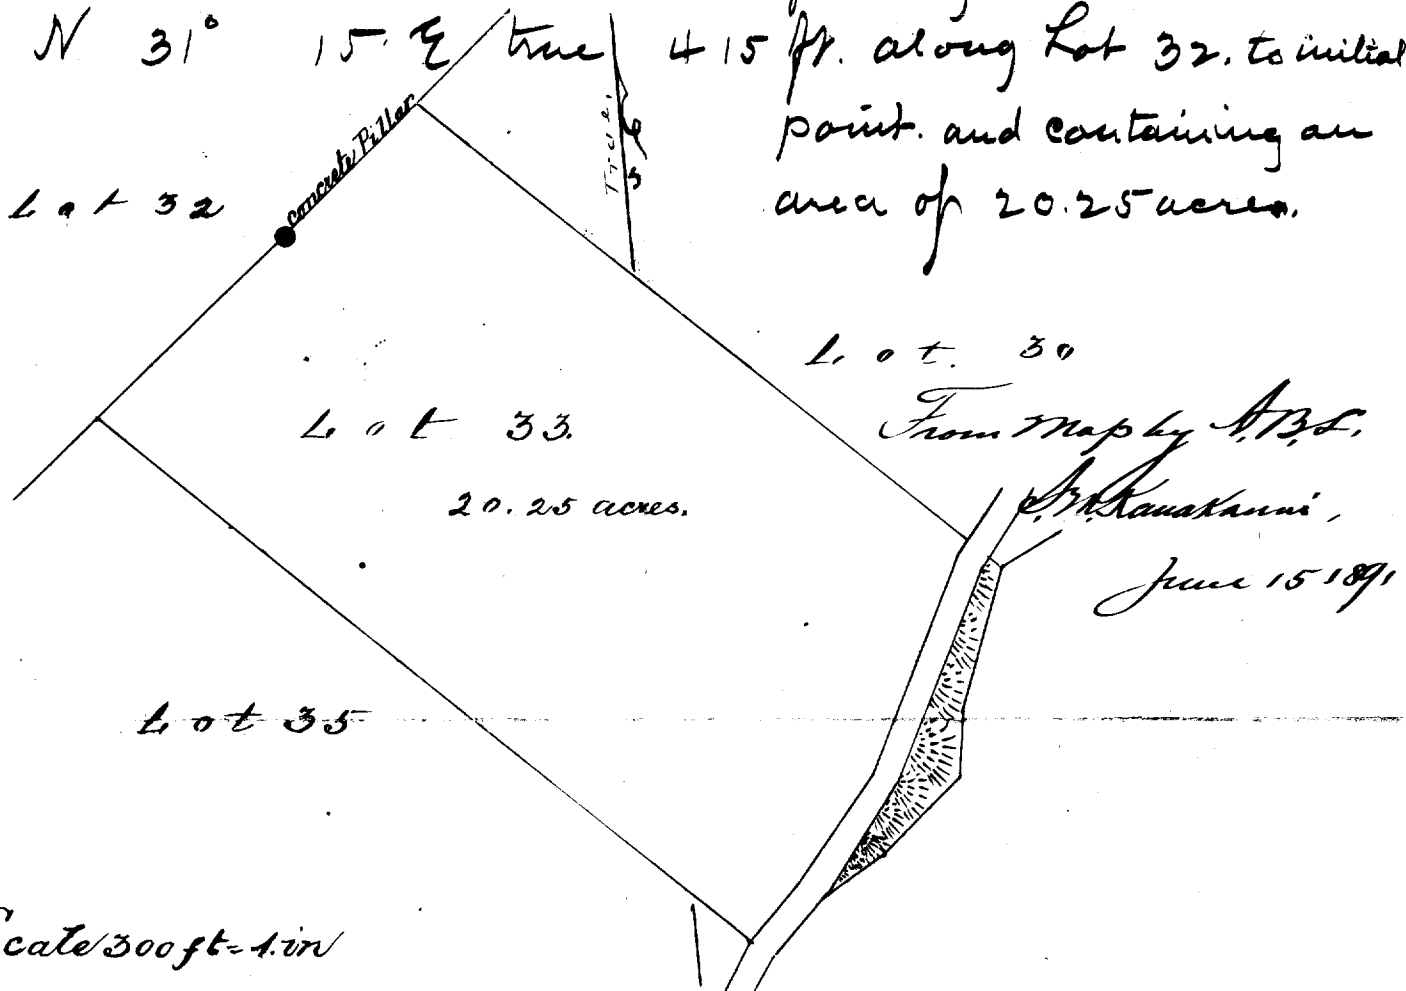 N 31° 15' E true 415 ft. along Lot 32. to initial
point. and containing an
area of 20.25 acres.
Concrete Pillar
True
Lot 32
Lot 30
Lot 33.
From Map by
20.25 acres.
June 15 1891
Lot 35
Scale 300 ft = 1 in